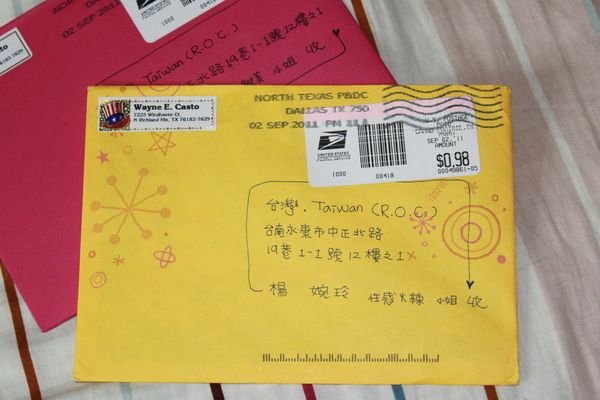 02 SEP 2011
1000
00418
76182-7629
Taiwan (R.O.C.)
中正北路19巷1-1號12樓之1
小姐 收
Wayne E. Casto
7225 Windhaven Ct
N Richland Hls, TX 76182-7629
NORTH TEXAS P&DC
DALLAS TX 750
02 SEP 2011 PM
UNITED STATES
POSTAL SERVICE
1000
00418
U.S. POSTAGE
SEP 02, 11
AMOUNT
$0.98
00049861-05
台灣. Taiwan (R.O.C.)
台南永康市中正北路
19巷 1-1 號 12 樓之1
楊 婉玲 性感火辣 小姐 收